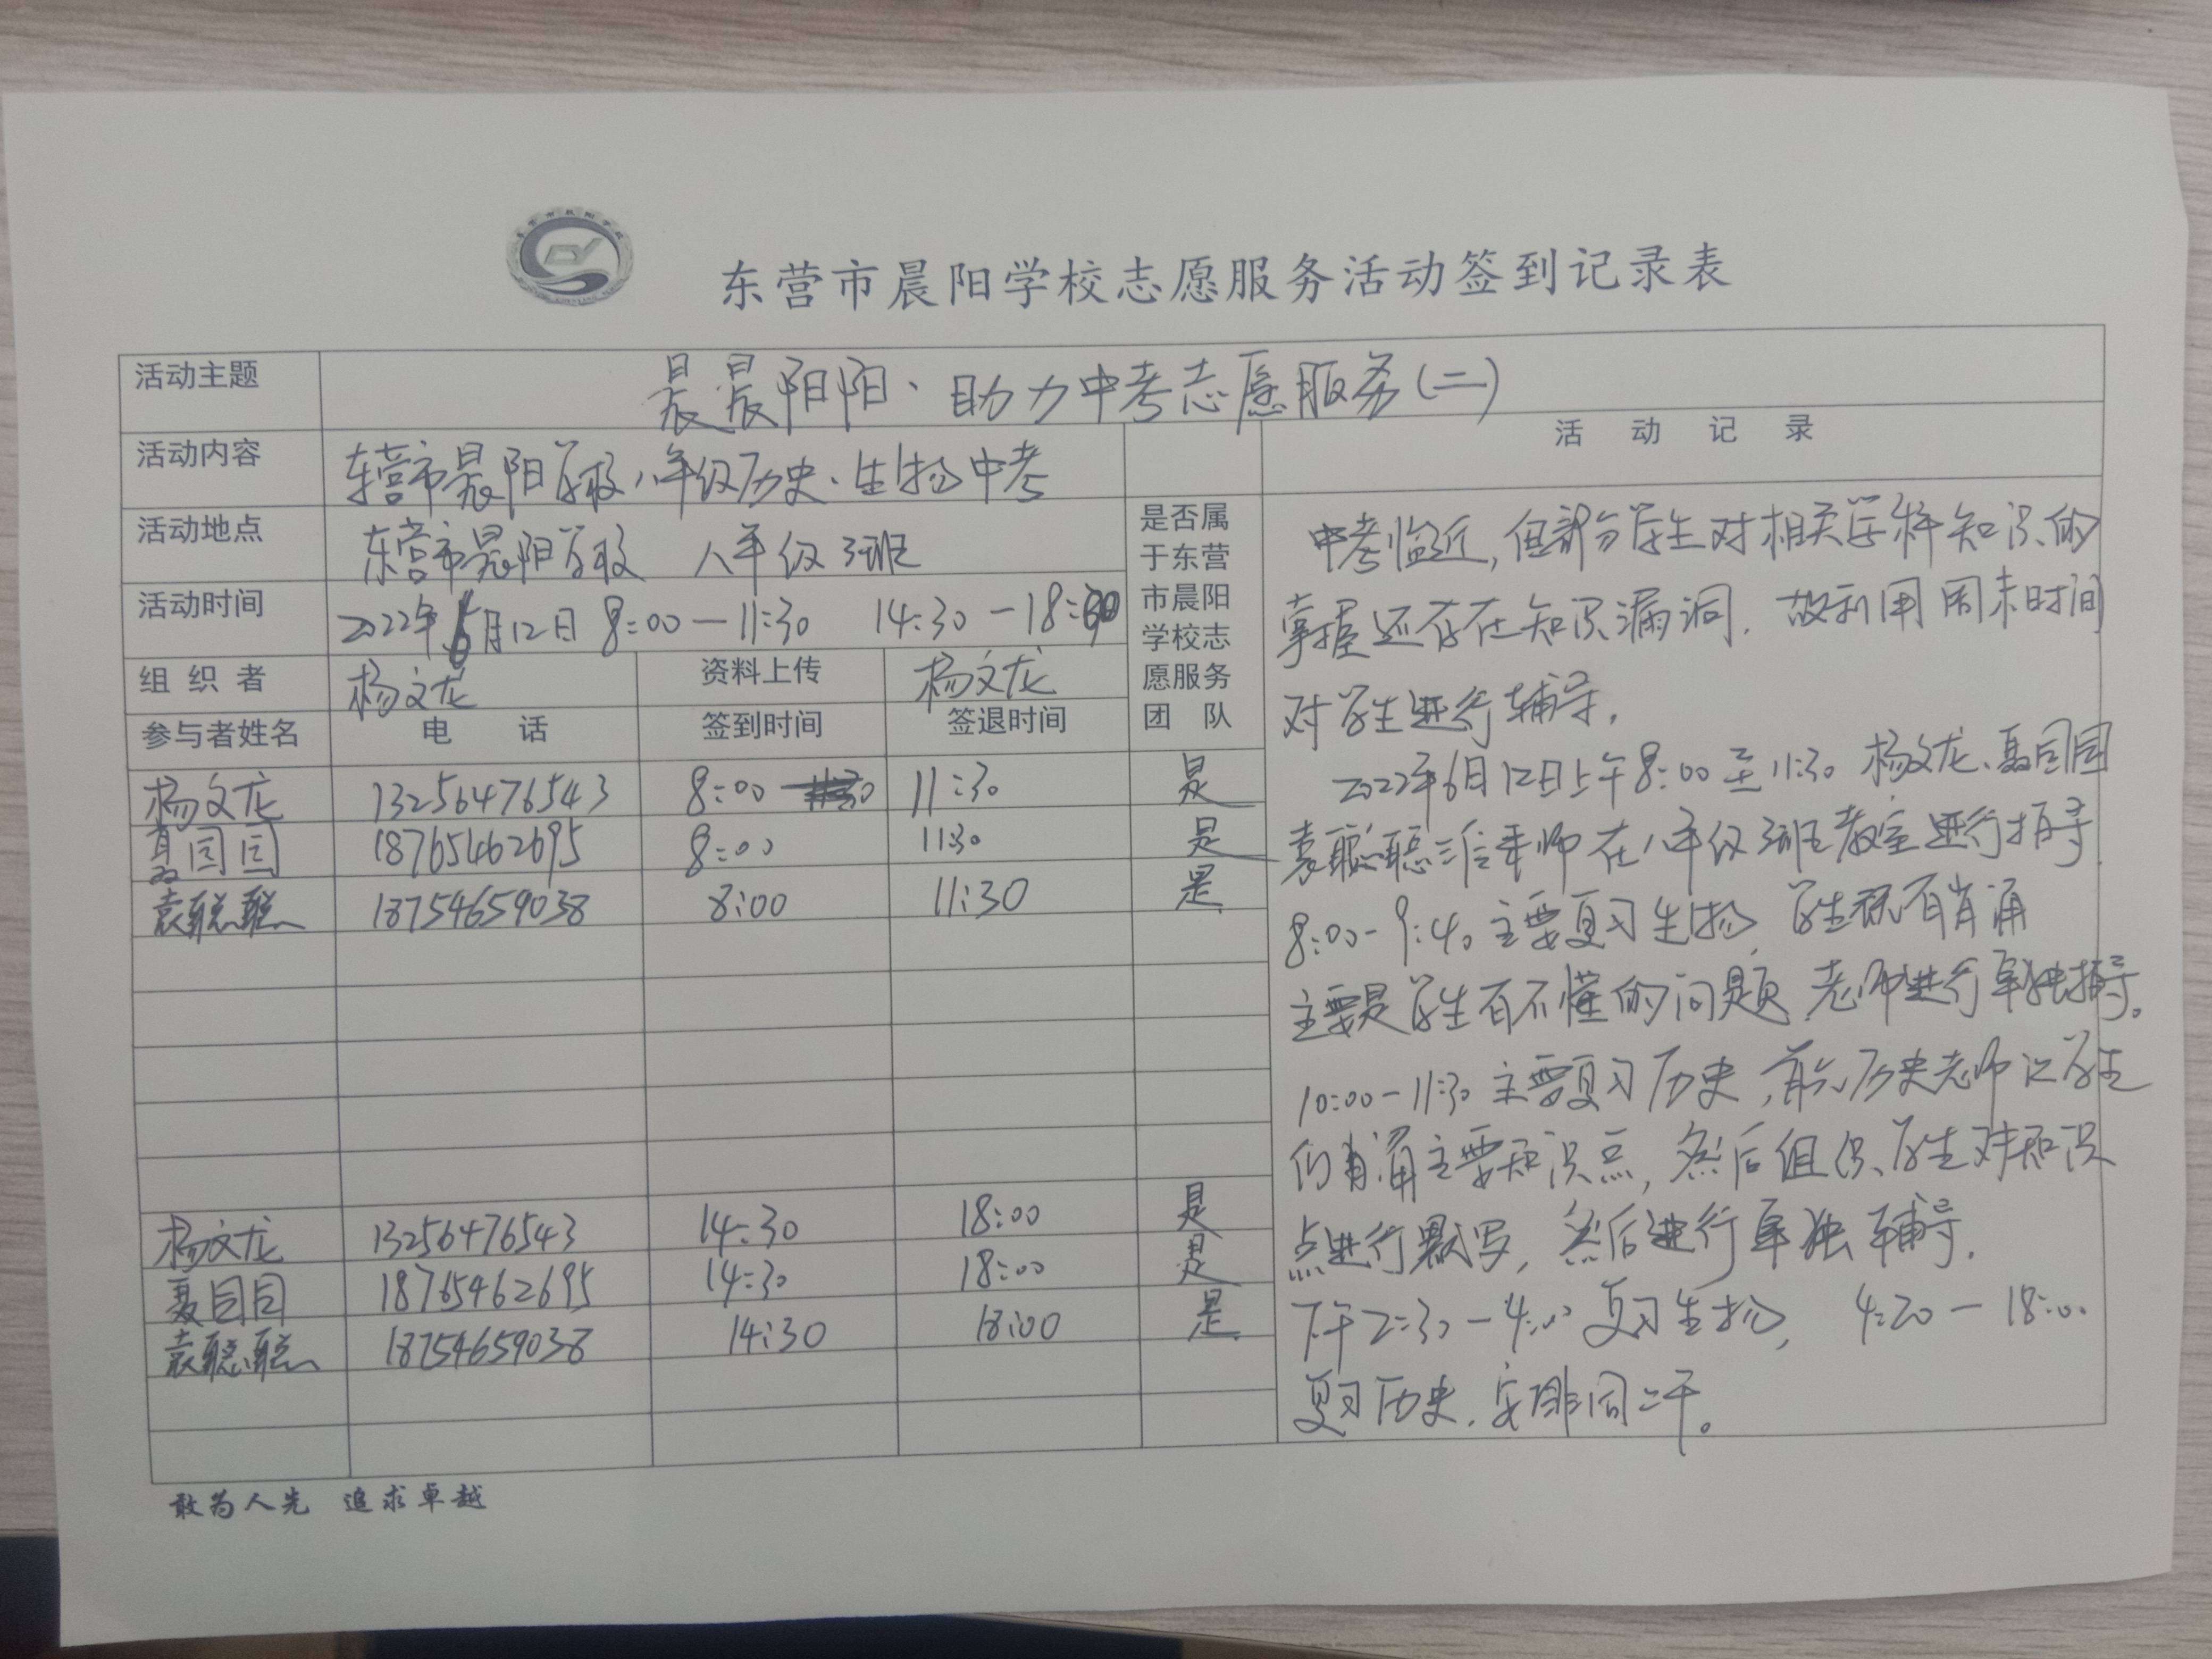 东营市晨阳学校志愿服务活动签到记录表
活动主题 晨晨阳阳、助力中考志愿服务(二)
活动内容 东营市晨阳学校八年级历史、生物中考
活动地点 东营市晨阳学校 八年级3班
活动时间 2022年6月12日 8:00-11:30 14:30-18:00
组织者 杨文龙 资料上传 杨文龙
参与者姓名 电 话 签到时间 签退时间
是否属
于东营
市晨阳
学校志
愿服务
团 队
杨文龙 13256476543 8:00 11:30 是
聂园园 18765462695 8:00 11:30 是
袁聪聪 18754659038 8:00 11:30 是
杨文龙 13256476543 14:30 18:00 是
聂园园 18765462695 14:30 18:00 是
袁聪聪 18754659038 14:30 18:00 是
活 动 记 录
中考临近,但部分学生对相关学科知识的
掌握还存在知识漏洞.故利用周末时间
对学生进行辅导.
2022年6月12日上午8:00至11:30 杨文龙、聂园园
袁聪聪三位老师在八年级3班教室进行指导.
8:00-9:40主要复习生物,学生既有背诵
主要是学生有不懂的问题,老师进行单独指导。
10:00-11:30主要复习历史,首先历史老师让学生
们背诵主要知识点,然后组织学生对知识
点进行默写,然后进行单独辅导.
下午2:30-4:00复习生物, 4:20-18:00
复习历史.安排同上午。
敢为人先 追求卓越